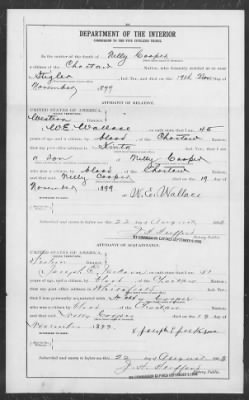 DEPARTMENT OF THE INTERIOR
COMMISSION TO THE FIVE CIVILIZED TRIBES
In the matter of the death of Nelly Cooper
a citizen of the Choctaw Nation, who formerly resided at or near
Stigler Ind. Ter., and died on the 19th day of
November 1899
AFFIDAVIT OF RELATIVE
UNITED STATES OF AMERICA
INDIAN TERRITORY
Western District
W.E. Wallace on oath state that I am 45
years of age and a citizen by blood of the Choctaw
Nation; that my post office address is Kinta Ind. Ter.
a son of Nelly Cooper
who was a citizen by blood of the Choctaw Nation
and that said Nelly Cooper died on the 19 day of
November 1899
W.E. Wallace
Subscribed and sworn to before me this 22 day of August
Notary Public
AFFIDAVIT OF ACQUAINTANCE
UNITED STATES OF AMERICA
INDIAN TERRITORY
District
Joseph E. Jackson on oath state that I am
years of age and a citizen by blood of the Choctaw
Nation; that my post office address is Whitefield Ind. Ter.
that I was personally acquainted with Nelly Cooper
who was a citizen by blood of the Choctaw Nation
and that said Nelly Cooper died on the day of
November 1899
Joseph E Jackson
Subscribed and sworn to before me this 22 day of August
Notary Public